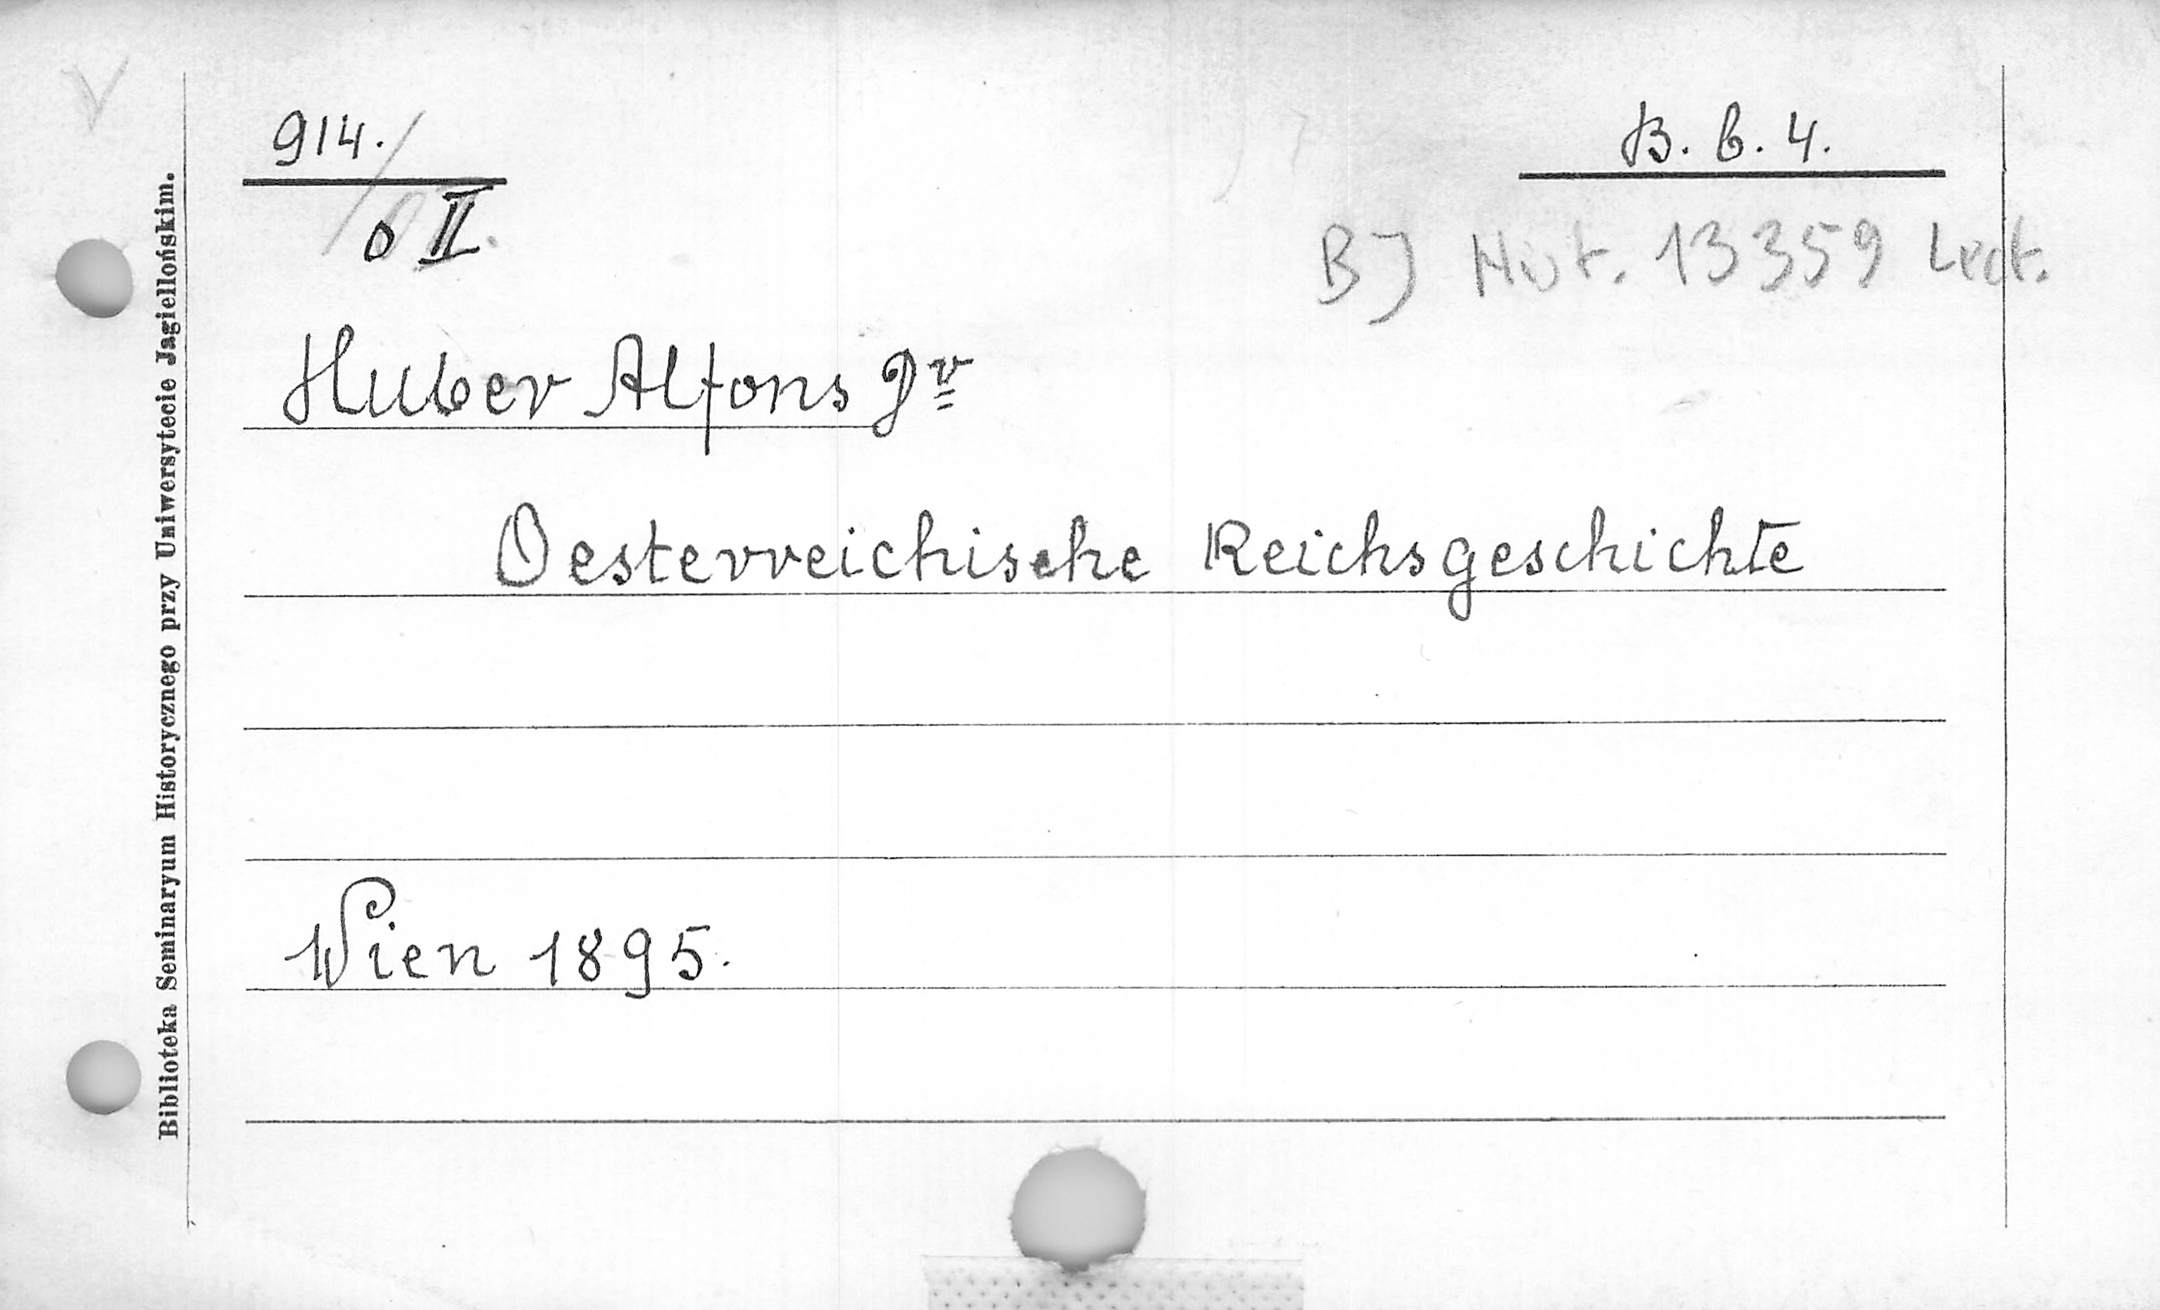 914.
o II.
B. b. 4.
BJ Hist. 13359 Lect.
Huber Alfons Dr
Oesterreichische Reichsgeschichte
Wien 1895.
Biblioteka Seminaryum Historycznego przy Uniwersytecie Jagiellońskim.